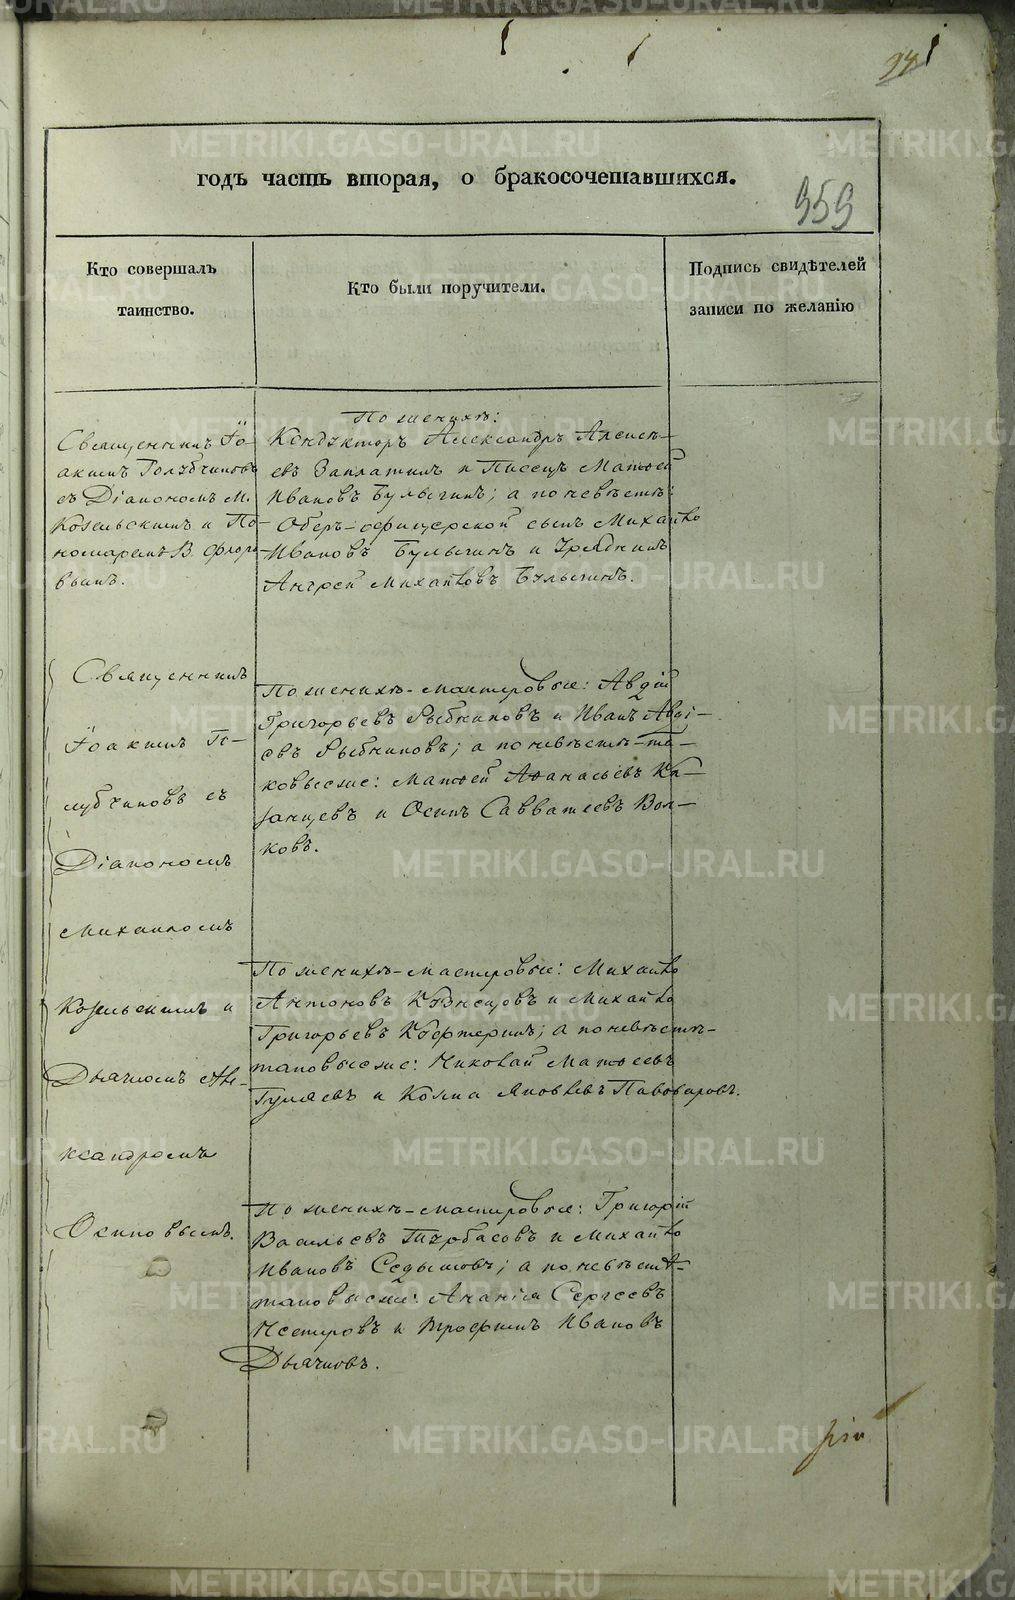 94
годъ часть вторая, о бракосочетавшихся.
959
Кто совершалъ
таинство.
Кто были поручители.
Подпись свидѣтелей
записи по желанію
Священникъ Іо-
акимъ Голубчиковъ
съ Діакономъ М.
Козельскимъ и По-
номаремъ В. Флоро-
вымъ.
По женихѣ:
Кондукторъ Александръ Алексѣ-
евъ Заплаткинъ и Писецъ Матвей
Ивановъ Булыгинъ; а по невѣстѣ:
Оберъ-офицерской сынъ Михайло
Ивановъ Булыгинъ и Урядникъ
Андрей Михайловъ Булыгинъ.
Священникъ
Іоакимъ Го-
лубчиковъ съ
Діакономъ
Михаиломъ
Козельскимъ и
Дьячкомъ Але-
ксандромъ
Осиповымъ.
По женихѣ-мастеровые: Авдій
Григорьевъ Рыбниковъ и Иванъ Авді-
евъ Рыбниковъ; а по невѣстѣ-та-
ковыеже: Матвей Афанасьевъ Ка-
занцевъ и Осипъ Савватеевъ Вол-
ковъ.
По женихѣ-мастеровые: Михайло
Антоновъ и Михайло
Григорьевъ а по невѣстѣ-
таковыеже: Николай Матвеевъ
Гуляевъ и Козма Яковлевъ Пивоваровъ.
По женихѣ-мастеровые: Григорій
Васильевъ Турбасовъ и Михайло
Ивановъ а по невѣстѣ-
таковыеже: Ананія Сергеевъ
и Трофимъ Ивановъ
Дьячковъ.
METRIKI.GASO-URAL.RU